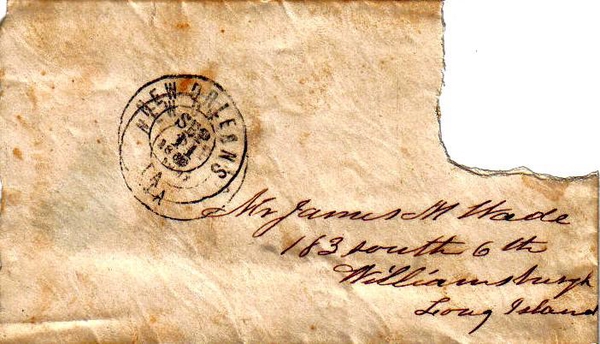 NEW ORLEANS
SEP
11
LA
Mr James M Wade
183 south 6th
Williamsburgh
Long Island